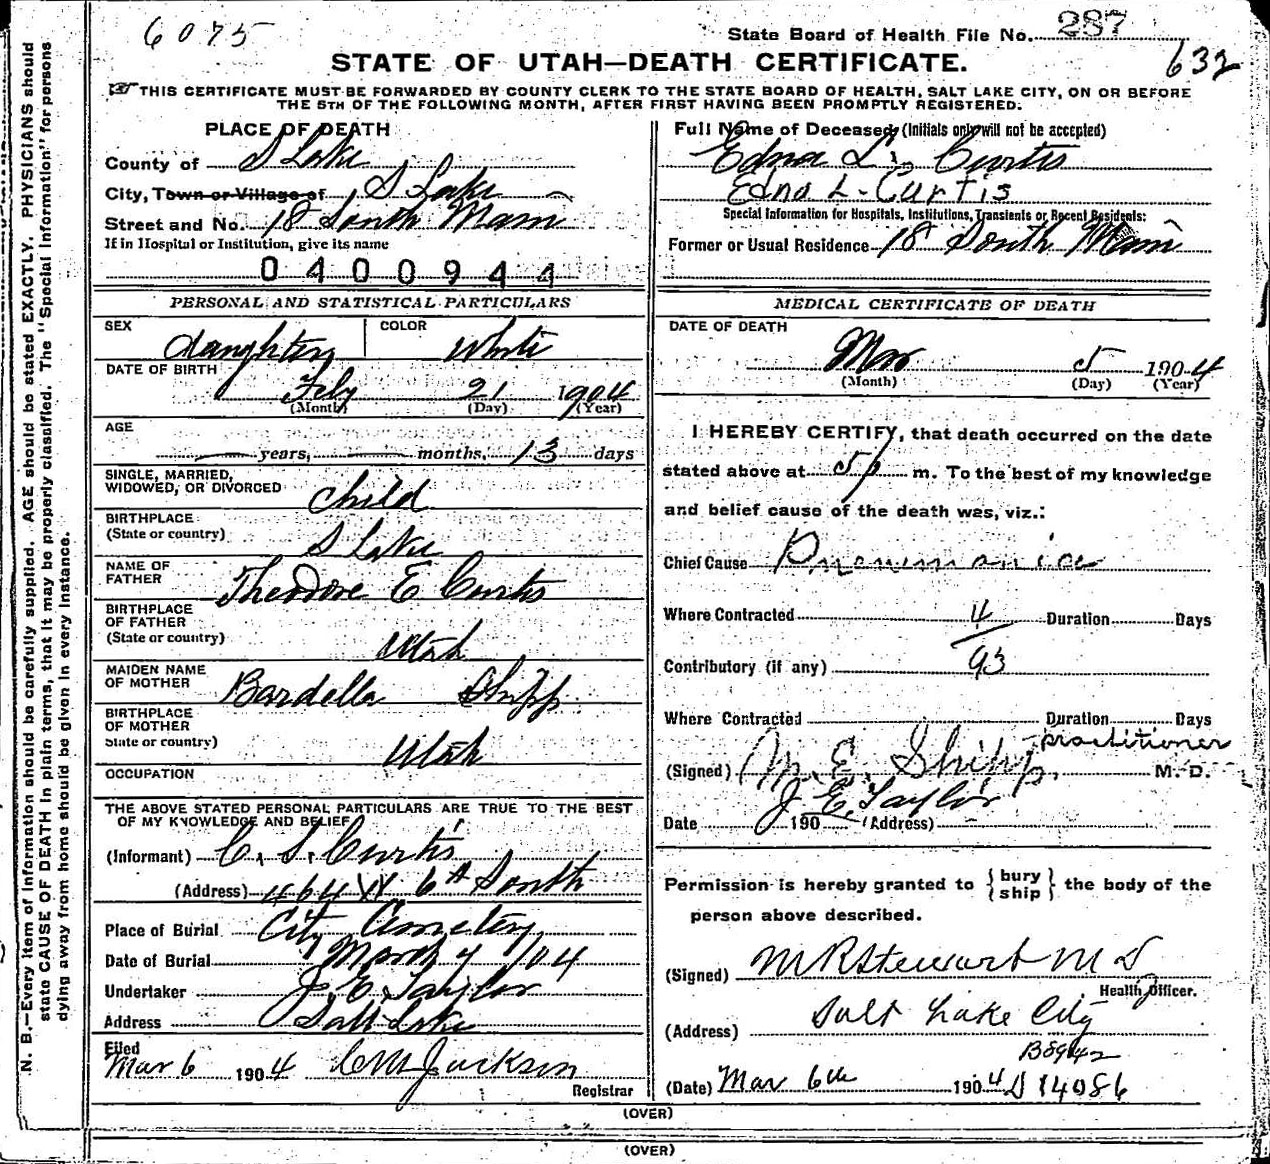 6075
State Board of Health File No. 287
632
STATE OF UTAH—DEATH CERTIFICATE.
THIS CERTIFICATE MUST BE FORWARDED BY COUNTY CLERK TO THE STATE BOARD OF HEALTH, SALT LAKE CITY, ON OR BEFORE
THE 5TH OF THE FOLLOWING MONTH, AFTER FIRST HAVING BEEN PROMPTLY REGISTERED.
N. B.—Every item of information should be carefully supplied. AGE should be stated EXACTLY. PHYSICIANS should
state CAUSE OF DEATH in plain terms, that it may be properly classified. The "Special Information" for persons
dying away from home should be given in every instance.
PLACE OF DEATH
County of S Lake
City, Town or Village of S Lake
Street and No. 18 South Main
If in Hospital or Institution, give its name
0400944
PERSONAL AND STATISTICAL PARTICULARS
SEX daughter COLOR White
DATE OF BIRTH Feby 21 1904
(Month) (Day) (Year)
AGE
years, months, 13 days
SINGLE, MARRIED,
WIDOWED, OR DIVORCED child
BIRTHPLACE
(State or country) S Lake
NAME OF
FATHER Theodore E Curtis
BIRTHPLACE
OF FATHER
(State or country) Utah
MAIDEN NAME
OF MOTHER Bardella Shipp
BIRTHPLACE
OF MOTHER
State or country) Utah
OCCUPATION
THE ABOVE STATED PERSONAL PARTICULARS ARE TRUE TO THE BEST
OF MY KNOWLEDGE AND BELIEF
(Informant) C. S. Curtis
(Address) 464 W 6th South
Place of Burial City Cemetery
Date of Burial March 7 /04
Undertaker J. E. Taylor
Address Salt Lake
Filed
Mar 6 1904 C M Jackson
Registrar
Full Name of Deceased (Initials only will not be accepted)
Edna L. Curtis
Edna L. Curtis
Special Information for Hospitals, Institutions, Transients or Recent Residents:
Former or Usual Residence 18 South Main
MEDICAL CERTIFICATE OF DEATH
DATE OF DEATH
Mar 5 1904
(Month) (Day) (Year)
I HEREBY CERTIFY, that death occurred on the date
stated above at 5 p m. To the best of my knowledge
and belief cause of the death was, viz.:
Chief Cause Pneumonia
Where Contracted Duration Days
Contributory (if any) 93
Where Contracted Duration Days
practitioner
(Signed) M. E. Shipp. M. D.
J. E. Taylor
Date 190 (Address)
Permission is hereby granted to { bury ship } the body of the
person above described.
(Signed) M R Stewart M D
Health Officer.
(Address) Salt Lake City
B8942
(Date) Mar 6th 1904 D 14086
(OVER)
(OVER)